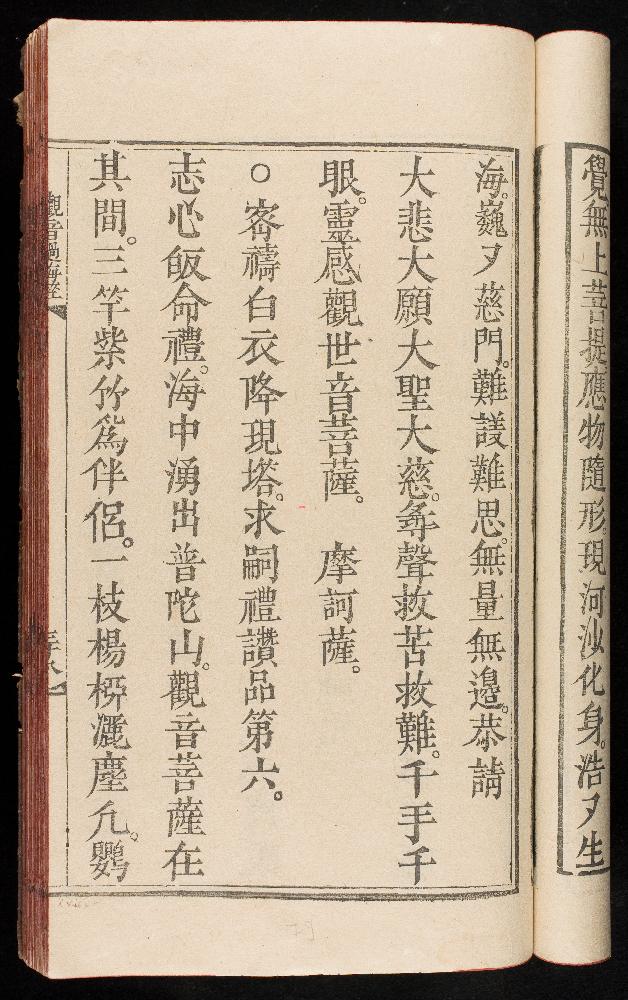 覺無上菩提應物隨形現河沙化身。浩々生
海。巍々慈門。難議難思。無量無邊。恭請
大悲大願大聖大慈。尋聲救苦救難。千手千
眼。靈感觀世音菩薩。 摩訶薩。
○ 宻禱白衣降現塔。求嗣禮讚品第六。
志心皈命禮。海中湧出普陀山。觀音菩薩在
其間。三竿紫竹爲伴侶。一枝楊栁灑塵凡。鸚
觀音過海經
三十八